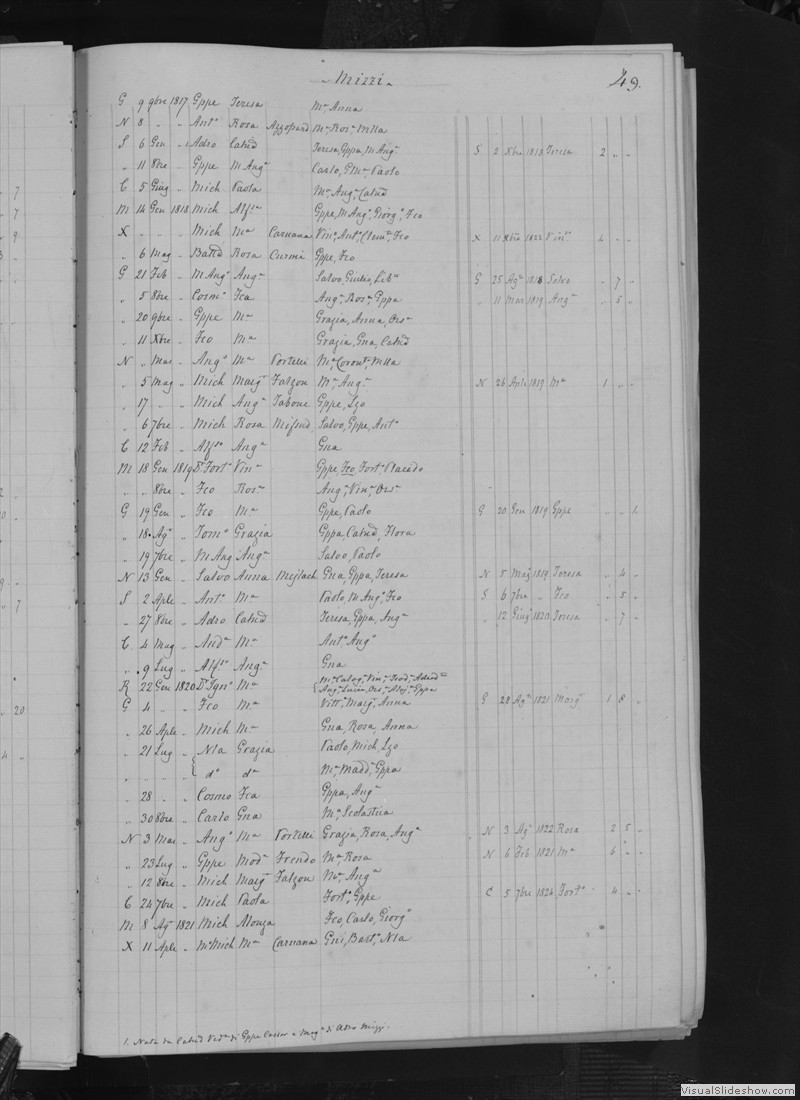 - Mizzi - 49.
G 9 9bre 1817 Gppe Teresa Ma, Anna
N 8 " " Anto Rosa Azzopardi Ma, Rosa, Mlla
S 6 Gen " Adro Catnd Teresa, Gppa, M Anga S 2 Xbre 1818 Teresa 2 " "
" 11 8bre " Gppe M Anga Carlo, G Ma, Paolo
C 5 Giug " Mich Paola Ma, Anga, Catnd
M 14 Gen 1818 Mich Alfsa Gppe, M Anga, Giorgo, Fco
X " " " Mich Ma Caruana Vino, Anto, Clemte, Fco X 11 Xbre 1822 Vino 4 " "
" 6 Mag " Battd Rosa Curmi Gppe, Fco
G 21 Feb " M Ango Anga Salvo, Giulio, Liba G 25 Ago 1818 Salvo " 7 "
" 5 8bre " Cosmo Fca Anga, Rosa, Gppa " 11 Mar 1819 Anga " 5 "
" 20 9bre " Gppe Ma Grazia, Anna, Orsa
" 11 Xbre " Fco Ma Grazia, Gna, Catnd
N " Mar " Ango Ma Portelli Ma, Coronta, Mlla
" 5 Mag " Mich Margta Falzon Ma, Anga N 26 Aple 1819 Ma 1 " "
" 17 " " Mich Anga Tabone Gppe, Lzo
" 6 7bre " Mich Rosa Mifsud Salvo, Gppe, Anto
C 12 Feb " Alfso Anga Gna
M 18 Gen 1819 Dr Forto Vina Gppe, Fco, Forto, Placido
" " 8bre " Fco Rosa Anga, Vina, Orsa
G 19 Gen " Fco Ma Gppe, Paolo G 20 Gen 1819 Gppe " " 1
" 18 Ago " Tomo Grazia Gppa, Catnd, Flora
" 19 7bre " M Ang Anga Salvo, Paolo
N 13 Gen " Salvo Anna Mejlach Gna, Gppa, Teresa N 5 Mag 1819 Teresa " 4 "
S 2 Aple " Anto Ma Paolo, M Ango, Fco S 6 7bre " Fco " 5 "
" 27 8bre " Adro Catnd Teresa, Gppa, Anga " 12 Giug 1820 Teresa " 7 "
C 4 Mag " Anda Ma Anto, Ango
" 9 Lug " Alfso Anga Gna
R 22 Gen 1820 Dr Igno Ma Ma, Caloga, Vina,
Anga, Lucia, Orsa, Aloja, Gppa
G 4 " " Fco Ma Vitta, Margta, Anna G 28 Ago 1821 Margta 1 8 "
" 26 Aple " Mich Ma Gna, Rosa, Anna
" 21 Lug " Nla Grazia Paolo, Mich, Lzo
" " " " do da Ma, Madda, Gppa
" 28 " " Cosmo Fca Gppa, Anga
" 30 8bre " Carlo Gna Ma, Scolastica
N 3 Mar " Ango Ma Portelli Grazia, Rosa, Anga N 3 Ago 1822 Rosa 2 5 "
" 23 Lug " Gppe Moda Frendo Ma, Rosa N 6 Feb 1821 Ma 6 " "
" 12 8bre " Mich Margta Falzon Ma, Anga
C 24 7bre " Mich Paola Forto, Gppe C 5 7bre 1824 Forto 4 "
M 8 Ago 1821 Mich Alonza Fco, Carlo, Giorgo
X 11 Aple " Mo Mich Ma Caruana Gni, Barto, Nla
1. Nata da Catnd Veda di Gppe Cassar e Moga di Adro Mizzi.
VisualSlideshow.com